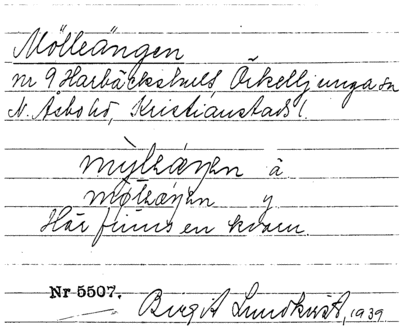 Mölleängen
nr 9 Harbäckshult, Örkelljunga sn
N. Åsbo hd, Kristianstads l.
å
y
Här finns en kvarn.
Nr 5507.
Birgit Lundkvist, 1939